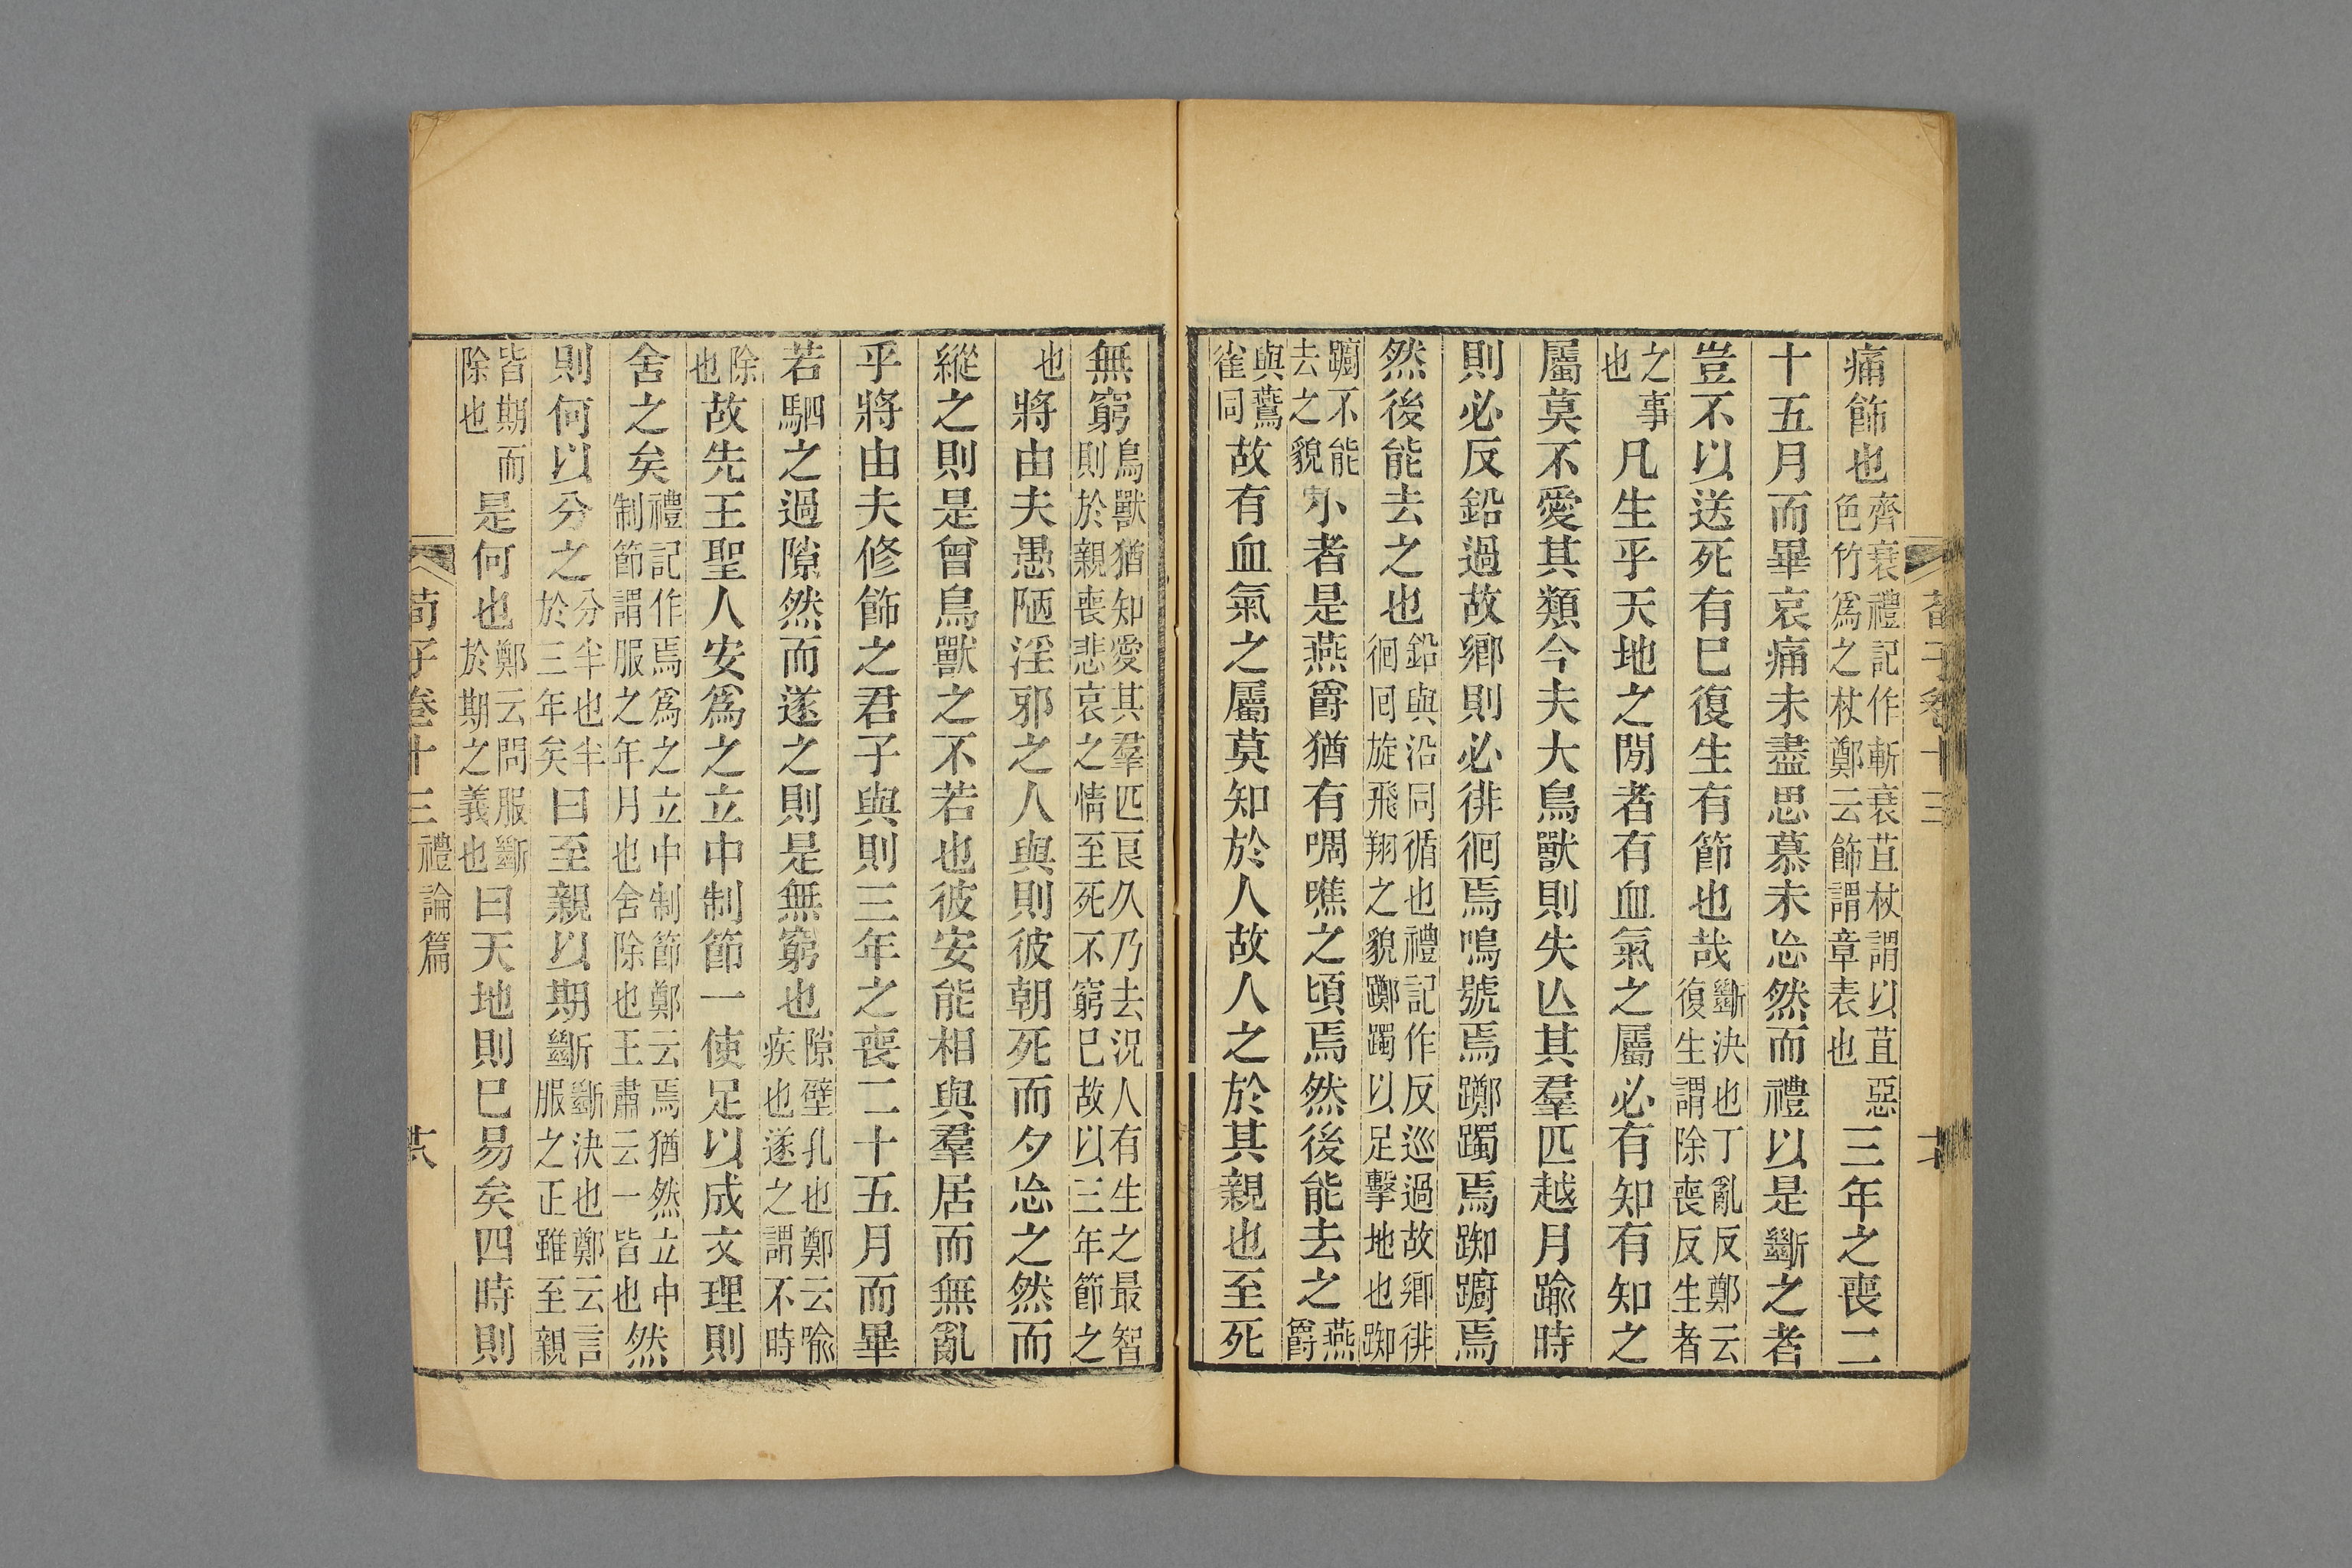 痛飾也齊衰禮記作斬衰苴杖謂以苴惡色竹爲之杖鄭云飾謂章表也三年之喪二
十五月而畢哀痛未盡思慕未㤀然而禮以是斷之者
豈不以送死有巳復生有節也哉斷決也丁亂反鄭云復生謂除喪反生者
之事也凡生乎天地之閒者有血氣之屬必有知有知之
屬莫不愛其類今夫大鳥獸則失亾其羣匹越月踰時
則必反鉛過故鄉則必徘徊焉鳴號焉躑躅焉踟躕焉
然後能去之也鉛與沿同循也禮記作反巡過故鄉徘徊回旋飛翔之貌躑躅以足擊地也踟
躕不能去之貌小者是燕爵猶有啁噍之頃焉然後能去之燕爵
與鷰雀同故有血氣之屬莫知於人故人之於其親也至死
無窮鳥獸猶知愛其羣匹良久乃去況人有生之最智則於親喪悲哀之情至死不窮巳故以三年節之
也將由夫愚陋淫邪之人與則彼朝死而夕㤀之然而
縱之則是曾鳥獸之不若也彼安能相與羣居而無亂
乎將由夫修飾之君子與則三年之喪二十五月而畢
若駟之過隙然而遂之則是無窮也隙壁孔也鄭云喩疾也遂之謂不時
除也故先王聖人安爲之立中制節一使足以成文理則
舍之矣禮記作焉爲之立中制節鄭云焉猶然立中制節謂服之年月也舍除也王肅云一皆也然
則何以分之分半也半於三年矣曰至親以期斷斷決也鄭云言服之正雖至親
皆期而除也是何也鄭云問服斷於期之義也曰天地則巳易矣四時則
荀子卷十三 禮論篇 六